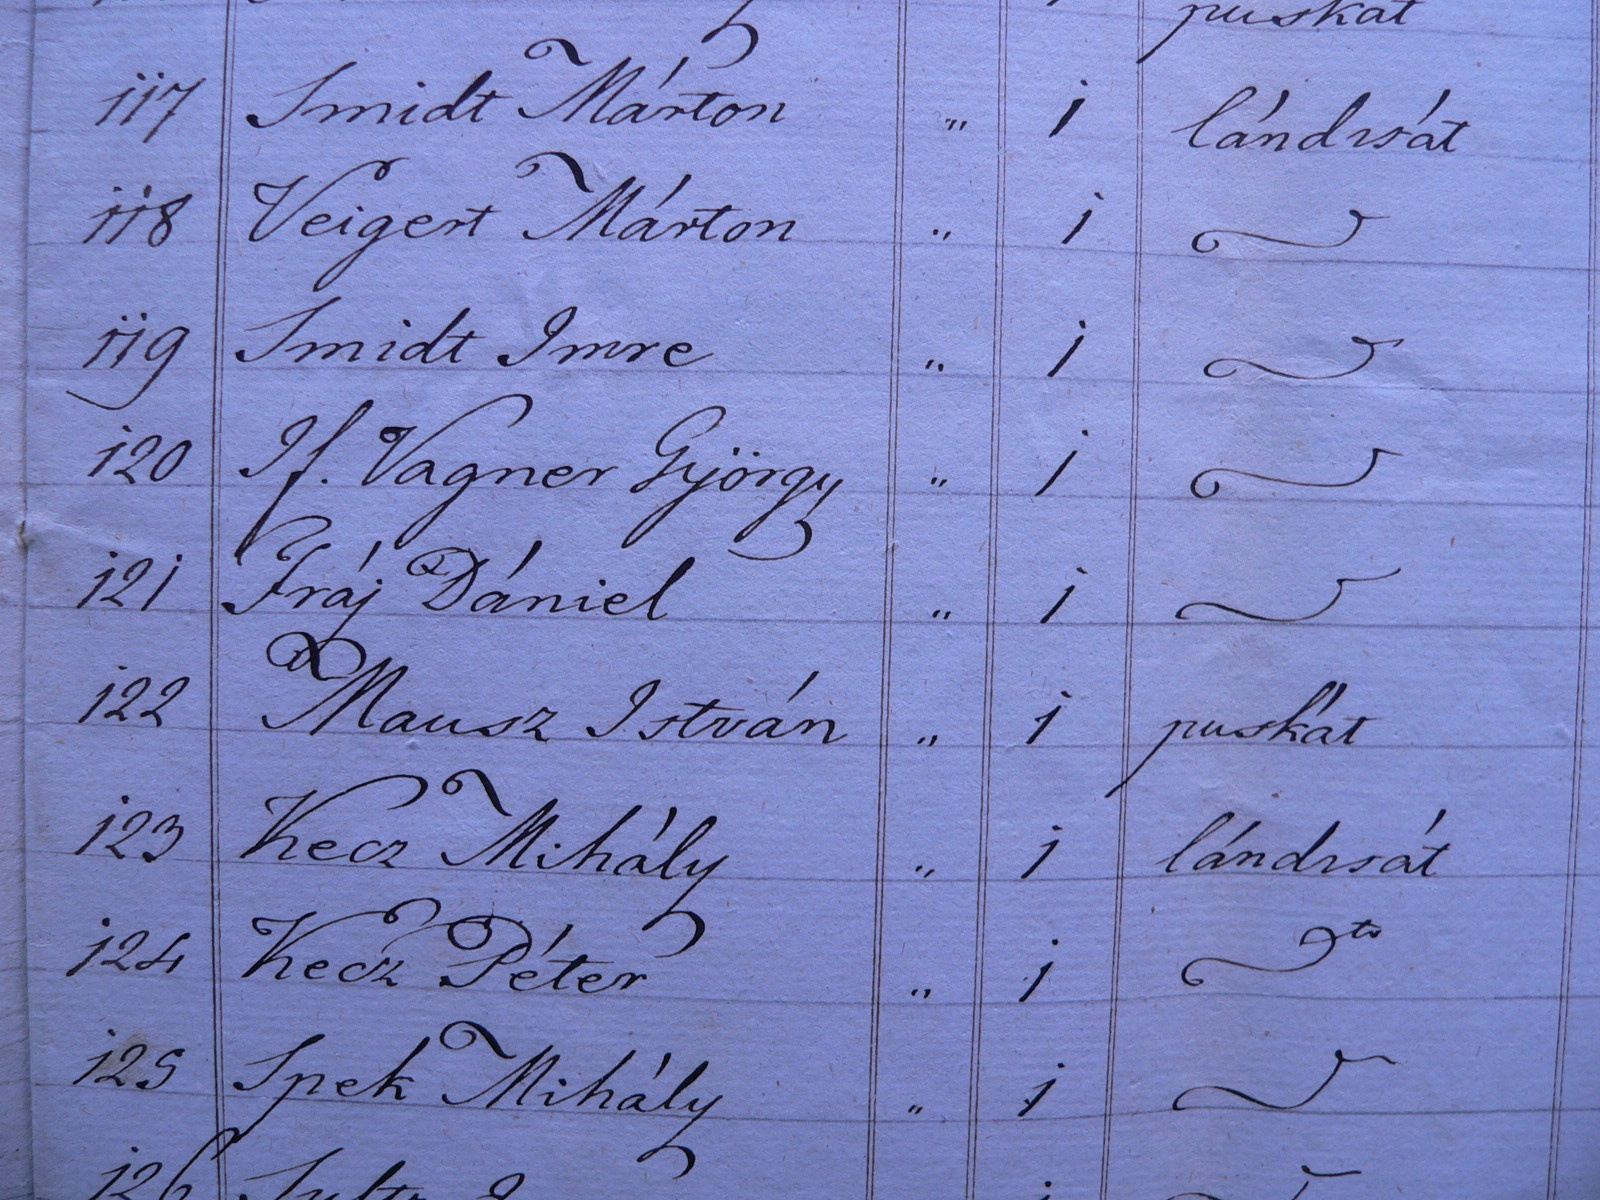 puskát
117 Smidt Márton „ 1 lándsát
118 Veigert Márton „ 1
119 Smidt Imre „ 1
120 If. Vagner György „ 1
121 Fráj Dániel „ 1
122 Mausz István „ 1 puskát
123 Kecz Mihály „ 1 lándsát
124 Kecz Péter „ 1 to
125 Spek Mihály „ 1
126